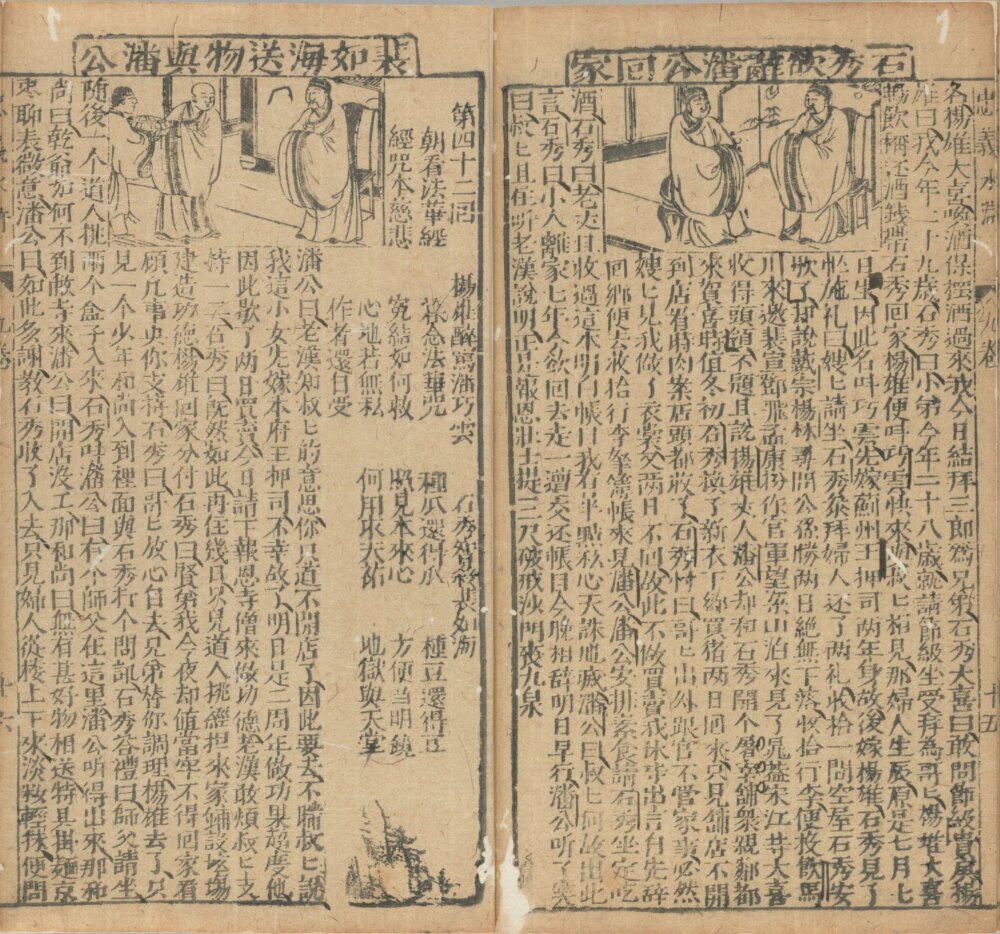 石秀欲辭潘公回家
忠義水滸 九卷 十五
各楊雄大喜喚酒保擺酒過來我今日結拜三郎為兄弟石秀大喜曰敢問節級貴庚楊
雄曰我今年二十九歲石秀曰小弟今年二十八歲就請節級坐受拜為哥匕楊雄大喜
暢飲一醉还酒錢帶石秀回家楊雄便叫巧雲快來與叔匕相見那婦人生辰原是七月七
日生因此名叫巧雲先嫁薊州王押司两年身故後嫁楊雄石秀見了
忙施礼曰嫂匕請坐石秀恭拜婦人还了两礼收拾一間空屋石秀安
歇了却說戴宗楊林尋問公孫勝两日絕無下落收拾行李便投飲馬
川來邀裴宣鄧飛孟康扮作官軍望梁山泊來見了晁蓋宋江甚大喜
收得頭領不題且說楊雄丈人潘公却和石秀開个屠宰舖衆親鄰都
來賀喜時值冬初石秀換了新衣下鄉買猪两日回來只見舖店不開
到店看時肉案店頭都收了石秀忖曰哥匕出外跟官不管家事必然
嫂匕見我做了衣裳又两日不回故此不做買賣我休等出言自先辞
回鄉便去收拾行李擎簿帳來見潘公潘公安排素食請石秀坐定吃
酒石秀曰老丈且收過這本明白帳目我若半點私心天誅地滅潘公曰叔匕何故出此
言石秀曰小人離家七年今欲回去走一遭交还帳目今晚相辞明日早行潘公听了笑
曰叔匕且住听老漢說明正是報恩壯士提三尺破戒沙門喪九泉
裴如海送物與潘公
第四十二回 楊雄醉罵潘巧雲 石秀智殺裴如海
朝看法華經 暮念法華咒 種瓜還得瓜 種豆還得豆
經咒本慈悲 寃結如何救 照見本來心 方便当明鏡
心地若無私 何用求天祐 地獄與天堂
作者還日受
潘公曰老漢知叔匕的意思你只道不開店了因此要去不瞞叔匕說
我這小女先嫁本府王押司不幸故了明日是二周年做功果超度他
因此歇了两日買賣今日請下報恩寺僧來做功德老漢敢煩叔匕支
持一二石秀曰既然如此再住幾日只見道人挑經担來家鋪設坛場
建造功德楊雄回家分付石秀曰賢弟我今夜却值當牢不得回家看
顧凡事央你支持石秀曰哥匕放心自去兄弟替你調理楊雄去了只
見一个少年和尚入到裡面與石秀打个問訊石秀答禮曰師父請坐
随後一个道人挑兩个盒子入來石秀叫潘公曰有个師父在這里潘公听得出來那和
尚曰乾爺如何不到敝寺來潘公曰開店没工那和尚曰無有甚好物相送特具掛麵京
枣聊表微意潘公曰如此多謝教石秀收了入去只見婦人從楼上下來淡粧輕抹便問
十六